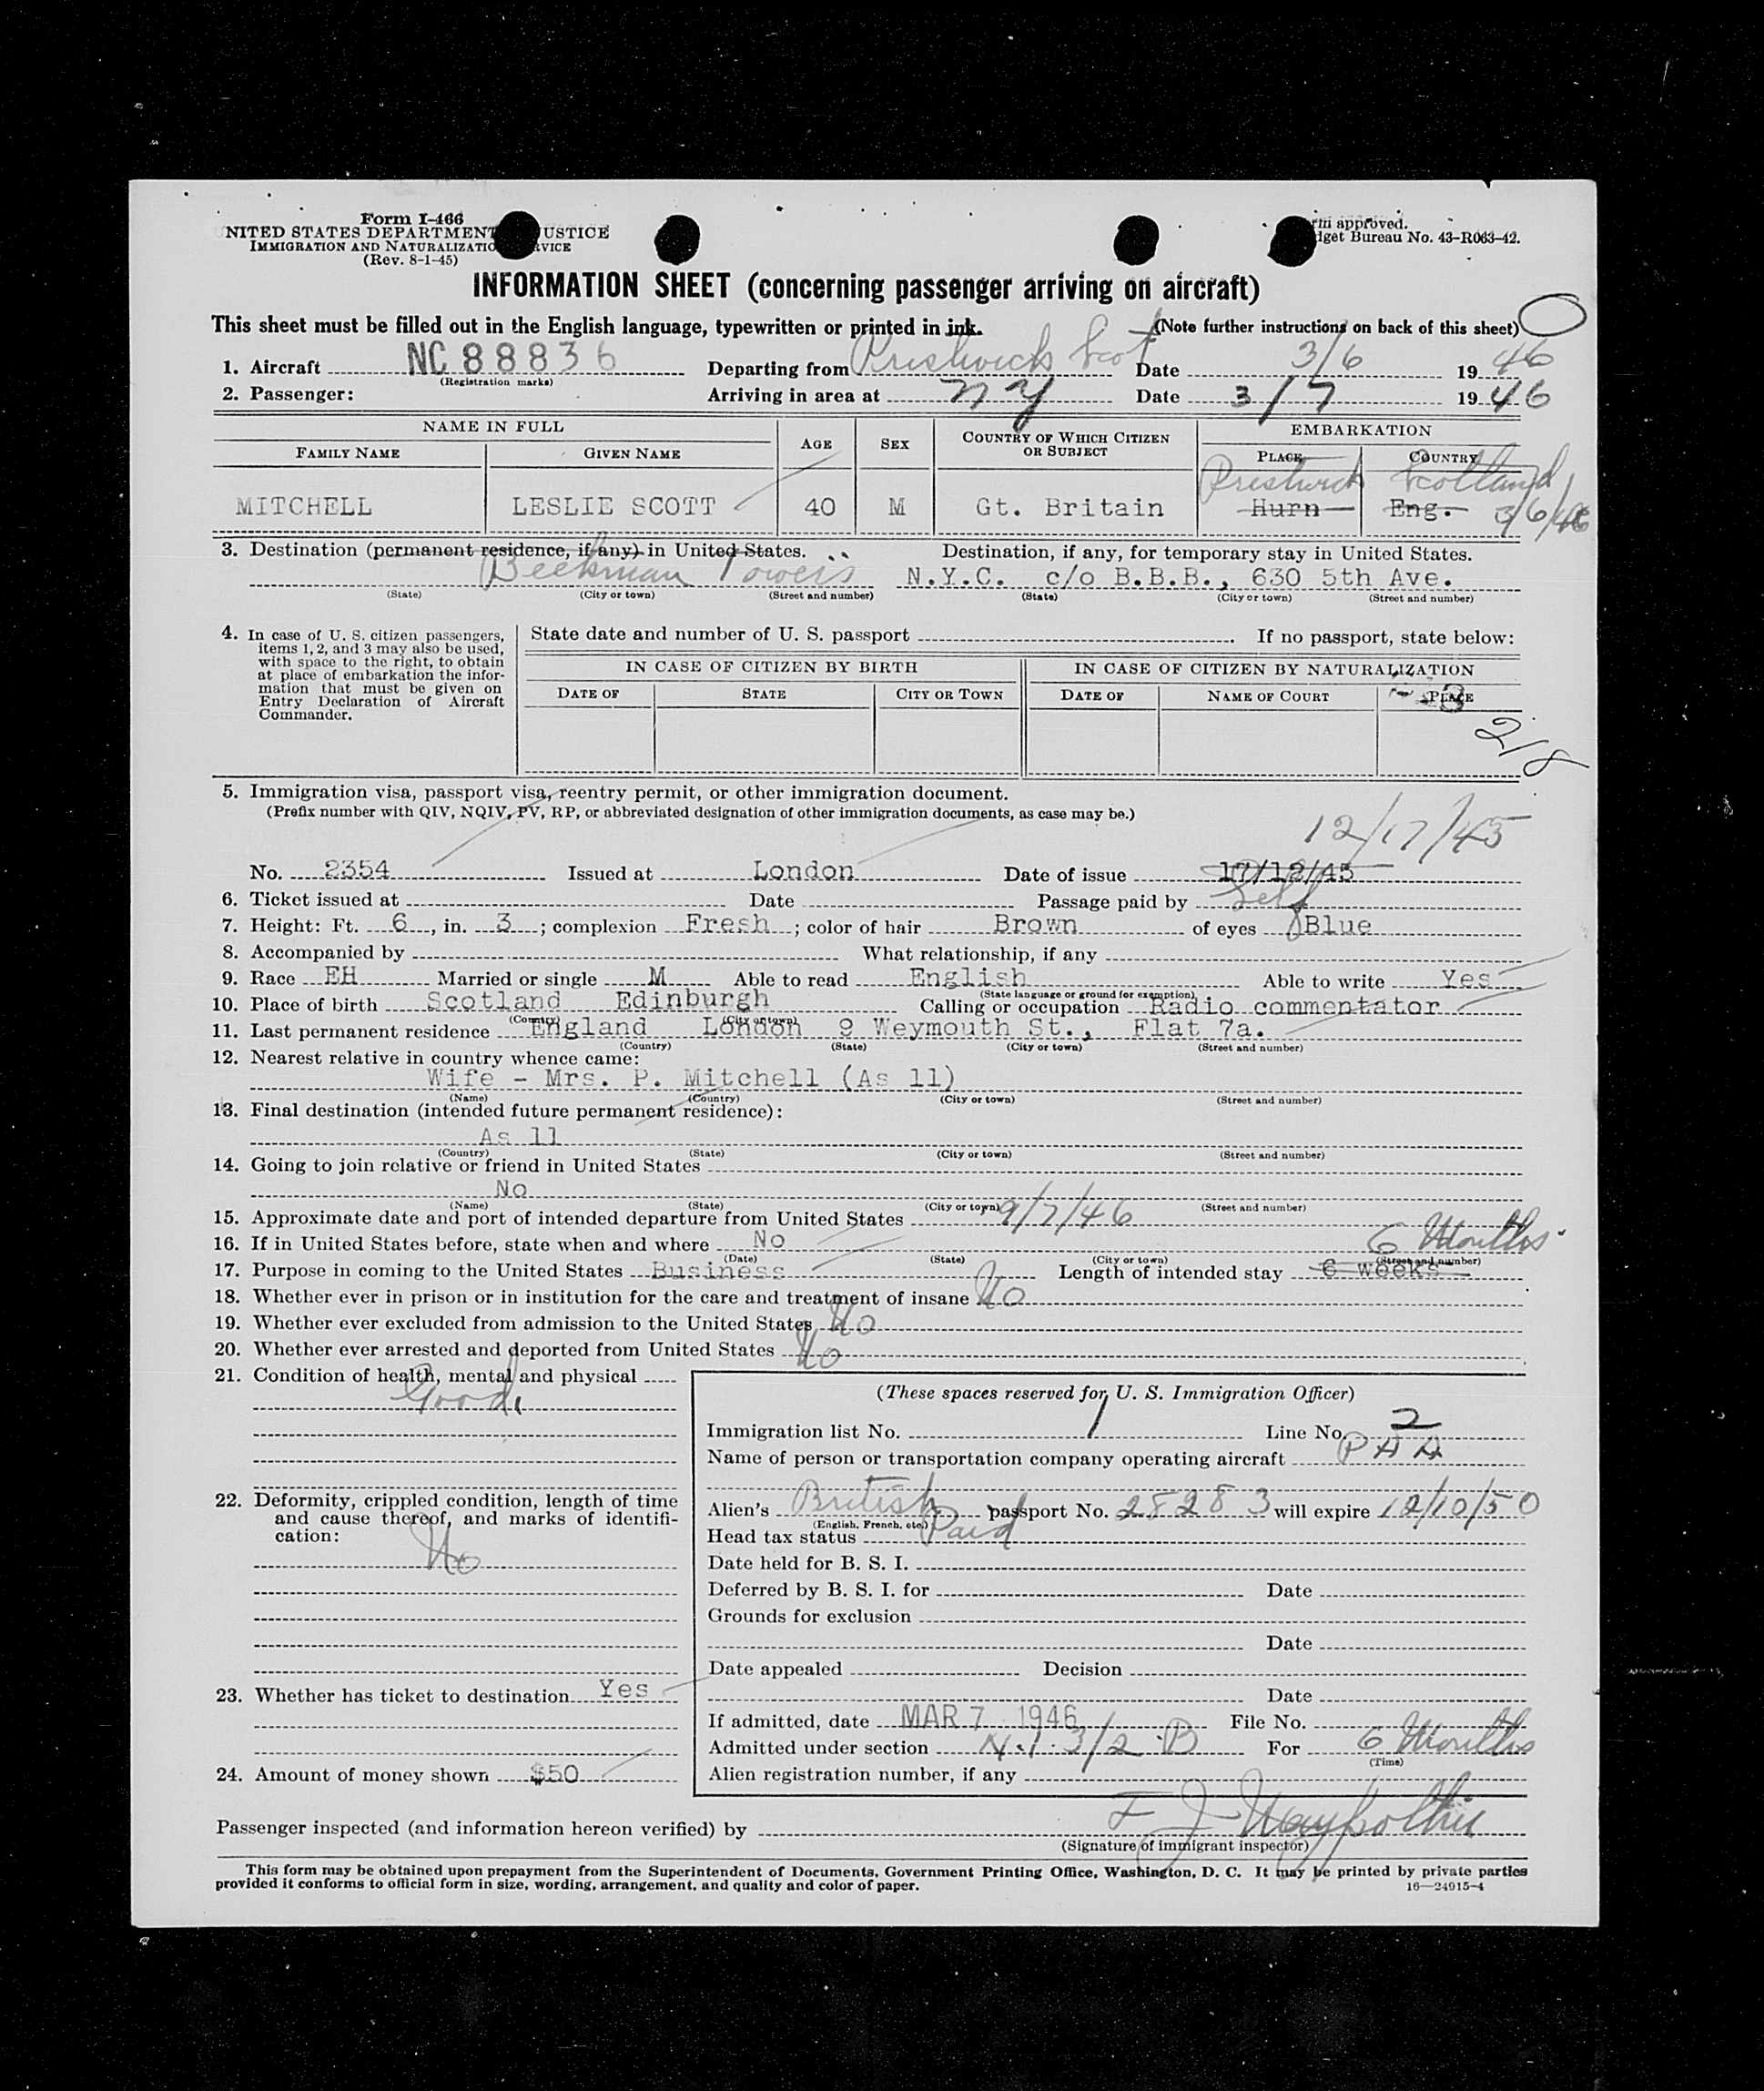 Form I-466
NITED STATES DEPARTMENT USTICE
IMMIGRATION AND NATURALIZATIO RVICE
(Rev. 8-1-45)
rm approved.
dget Bureau No. 43-R063-42.
INFORMATION SHEET (concerning passenger arriving on aircraft)
This sheet must be filled out in the English language, typewritten or printed in ink. (Note further instructions on back of this sheet)
1. Aircraft NC 88836 Departing from Prestwick Scot Date 3/6 1946
(Registration marks)
2. Passenger: Arriving in area at NY Date 3/7 1946
NAME IN FULL AGE SEX COUNTRY OF WHICH CITIZEN OR SUBJECT EMBARKATION
FAMILY NAME GIVEN NAME PLACE COUNTRY
Prestwick Scotland
MITCHELL LESLIE SCOTT 40 M Gt. Britain Hurn Eng. 3/6/46
3. Destination (permanent residence, if any) in United States. Destination, if any, for temporary stay in United States.
Beekman Towers N.Y.C. c/o B.B.B., 630 5th Ave.
(State) (City or town) (Street and number) (State) (City or town) (Street and number)
4. In case of U. S. citizen passengers, items 1, 2, and 3 may also be used, with space to the right, to obtain at place of embarkation the information that must be given on Entry Declaration of Aircraft Commander.
State date and number of U. S. passport . If no passport, state below:
IN CASE OF CITIZEN BY BIRTH IN CASE OF CITIZEN BY NATURALIZATION
DATE OF STATE CITY OR TOWN DATE OF NAME OF COURT PLACE
218
5. Immigration visa, passport visa, reentry permit, or other immigration document.
(Prefix number with QIV, NQIV, PV, RP, or abbreviated designation of other immigration documents, as case may be.)
12/17/45
No. 2354 Issued at London Date of issue 17/12/45
6. Ticket issued at Date Passage paid by Self
7. Height: Ft. 6, in. 3; complexion Fresh; color of hair Brown of eyes Blue
8. Accompanied by What relationship, if any
9. Race EH Married or single M Able to read English Able to write Yes
(State language or ground for exemption)
10. Place of birth Scotland Edinburgh Calling or occupation Radio commentator
(Country) (City or town)
11. Last permanent residence England London 9 Weymouth St., Flat 7a.
(Country) (State) (City or town) (Street and number)
12. Nearest relative in country whence came:
Wife - Mrs. P. Mitchell (As 11)
(Name) (Country) (City or town) (Street and number)
13. Final destination (intended future permanent residence):
As 11
(Country) (State) (City or town) (Street and number)
14. Going to join relative or friend in United States
No
(Name) (State) (City or town) (Street and number)
15. Approximate date and port of intended departure from United States 9/7/46
16. If in United States before, state when and where No
(Date) (State) (City or town) (Street and number)
6 Months
17. Purpose in coming to the United States Business Length of intended stay 6 weeks
18. Whether ever in prison or in institution for the care and treatment of insane No
19. Whether ever excluded from admission to the United States No
20. Whether ever arrested and deported from United States No
21. Condition of health, mental and physical
Good
(These spaces reserved for U. S. Immigration Officer)
Immigration list No. 1 Line No. 2
Name of person or transportation company operating aircraft PAA
22. Deformity, crippled condition, length of time and cause thereof, and marks of identification:
No
Alien's British passport No. 28283 will expire 12/10/50
(English, French, etc.)
Head tax status Paid
Date held for B. S. I.
Deferred by B. S. I. for Date
Grounds for exclusion
Date
Date appealed Decision
23. Whether has ticket to destination Yes
Date
If admitted, date MAR 7 1946 File No.
Admitted under section 3/2 B For 6 Months
(Time)
24. Amount of money shown $50
Alien registration number, if any
Passenger inspected (and information hereon verified) by F J
(Signature of immigrant inspector)
This form may be obtained upon prepayment from the Superintendent of Documents, Government Printing Office, Washington, D. C. It may be printed by private parties
provided it conforms to official form in size, wording, arrangement, and quality and color of paper. 16—24915-4